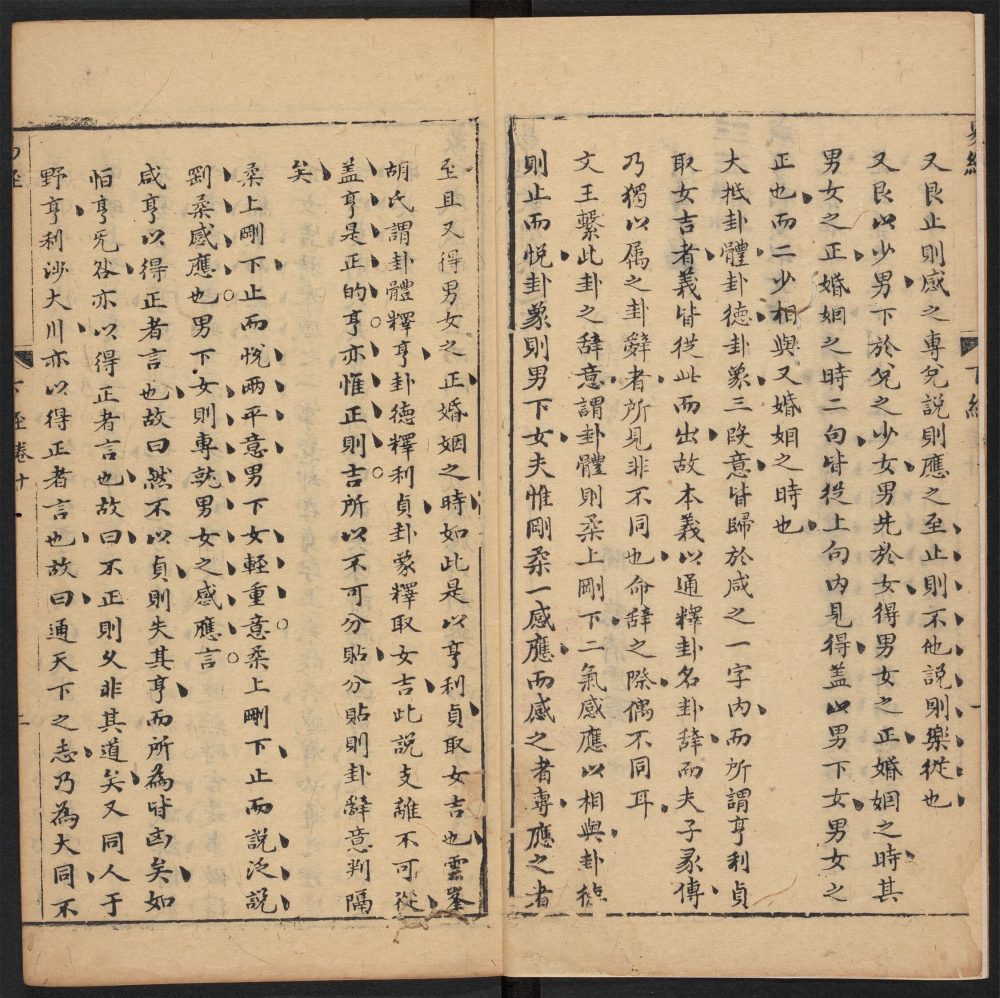 又艮止則感之專兌說則應之至止則不他說則樂從也
又艮以少男下於兌之少女男先於女得男女之正婚姻之時其
男女之正婚姻之時二句皆從上句內見得盖以男下女男女之
正也而二少相與又婚姻之時也
大抵卦體卦德卦象三段意皆歸於咸之一字內而所謂亨利貞
取女吉者義皆從此而出故本義以通釋卦名卦辞而夫子彖傳
乃獨以属之卦辤者所見非不同也命辞之際偶不同耳
文王繫此卦之辞意謂卦體則柔上剛下二氣感應以相與卦德
則止而悅卦象則男下女夫惟剛柔一感應而感之者專應之者
至且又得男女之正婚姻之時如此是以亨利貞取女吉也雲峯
胡氏謂卦體釋亨卦德釋利貞卦象釋取女吉此説支離不可從
盖亨是正的亨亦惟正則吉所以不可分貼分貼則卦辤意判隔
矣
柔上剛下止而悅兩平意男下女輕重意柔上剛下止而説泛説
剛柔感應也男下女則專就男女之感應言
咸亨以得正者言也故曰然不以貞則失其亨而所為皆凶矣如
恒亨旡咎亦以得正者言也故曰不正則久非其道矣又同人于
野亨利涉大川亦以得正者言也故曰通天下之志乃為大同不
易經
下經
一
下經卷十
二